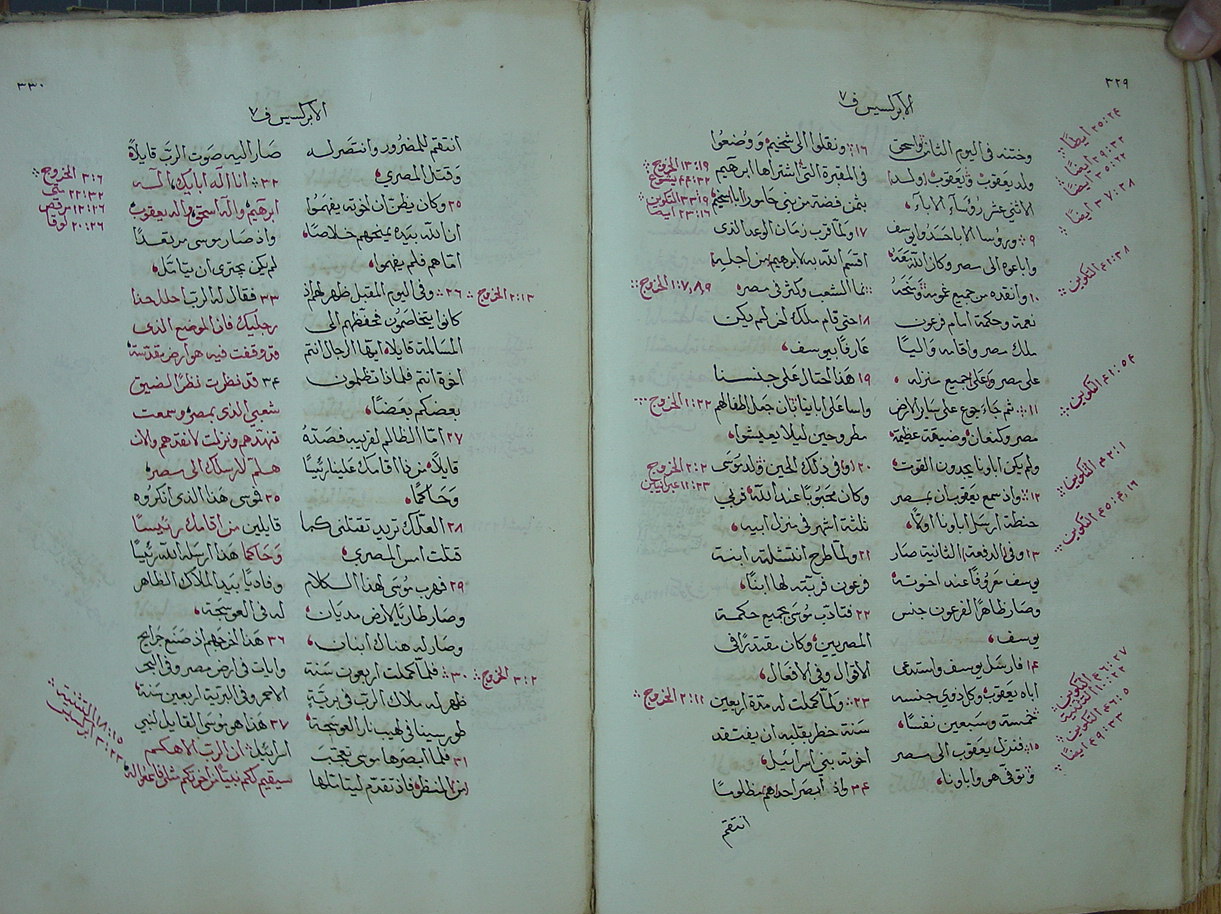 ٣٢٩
الابركسيس ف ٧
وختنه في اليوم الثامن واسحق
ولد يعقوب ويعقوب اولد
الاثني عشر رؤساء الاباء
٩ ورؤسا الابا حسدوا يوسف
واباعوه الى مصر وكان الله معه
١٠ وانقذه من جميع غمومه ومنحه
نعمة وحكمة امام فرعون
ملك مصر واقامه واليًا
على مصر وعلى جميع منزله
١١ ثم جاء جوع على ساير الارض
مصر وكنعان وضيقة عظيمة
ولم يكن اباونا يجدون القوت
١٢ واذ سمع يعقوب ان بمصر
حنطة ارسل اباونا اولًا
١٣ وفي الدفعة الثانية صار
يوسف معروفًا عند اخوته
وصار ظاهرًا لفرعون جنس
يوسف
١٤ فارسل يوسف واستدعى
اباه يعقوب وكل ذوي جنسه
خمسة وسبعين نفسًا
١٥ فنزل يعقوب الى مصر
وتوفي هو واباونا
٢٤:٢٥ ايضًا
٣٢:٢٩ ايضًا
٢٢:٣٥ ايضًا
٢٨:٣٧ ايضًا
التكوين
التكوين
التكوين
التكوين
٢٧:٤٦ التكوين
٢٢:١٠ التثنية
٥:٤٦ التكوين
٣٣:٤٩ ايضًا
١٦ ونقلوا الى شخيم ووضعوا
في المقبرة التي اشتراها ابرهيم
بثمن فضة من بني حامور ابا شخيم
١٧ ولما قرب زمان الوعد الذي
اقسم الله به لابرهيم من اجله
نما الشعب وكثر في مصر
١٨ حتى قام ملك اخر لم يكن
عارفًا بيوسف
١٩ هذا احتال على جنسنا
واسا على اباينا بان جعل اطفالهم
مطروحين ليلا يعيشوا
٢٠ وفي ذلك الحين ولد موسى
وكان محبوبًا عند الله فربي
ثلثة اشهر في منزل ابيه
٢١ ولما طرح انتشلته ابنة
فرعون فربته لها ابنًا
٢٢ فتادب موسى بجميع حكمة
المصريين وكان مقتدرًا في
الاقوال وفي الافعال
٢٣ ولما كملت له مدة اربعين
سنة خطر بقلبه ان يفتقد
اخوته بني اسرائيل
٢٤ واذ ابصر احدهم مظلومًا
انتقم
١٩:١٣ الخروج
٣٢:٢٤ يشوع
١٩:٣٣ التكوين
١٦:٢٣ ايضًا
١:٧،٨،٩ الخروج
٢٢:١ الخروج
٢:٢ الخروج
٢٣:١١ عبرانيين
١١:٢ الخروج
٣٣٠
الابركسيس ف ٧
انتقم للمضرور وانتصر له
وقتل المصري
٢٥ وكان يظن ان اخوته يفهموا
ان الله بيده يمنحهم خلاصًا
اما هم فلم يفهموا
٢٦ وفي اليوم المقبل ظهر لهم اذ
كانوا يتخاصمون فحقظهم الى
المسالمة قايلا ايها الرجال انتم
اخوة انتم فلماذا تظلمون
بعضكم بعضًا
٢٧ اما الظالم لقريبه فصده
قايلًا من ذا اقامك علينا رئيسًا
وحاكمًا
٢٨ العلك تريد تقتلني كما
قتلت امس المصري
٢٩ فهرب موسى لهذا الكلام
وصار طاريًا لارض مديان
وصار له هناك ابنان
٣٠ فلما كملت اربعون سنة
ظهر له ملاك الرب في برية
طور سينا في لهيب نار العوسجة
٣١ فلما ابصرها موسى تعجب
من المنظر فاذ تقدم ليتاملها
١٣:٢ الخروج
٢:٣ الخروج
صار اليه صوت الرب قايلًا
٣٢ انا اله ابايك اله
ابرهيم واله اسحق واله يعقوب
واذ صار موسى مرتعدًا
لم يكن يجتري ان يتامل
٣٣ فقال له الرب احلل حذا
رجليك فان الموضع الذي
قد وقفت فيه هو ارض مقدسة
٣٤ قد نظرت نظرًا لضيق
شعبي الذي بمصر وسمعت
تنهدهم ونزلت لانقذهم والان
هلم لارسلك الى مصر
٣٥ فموسى هذا الذي انكروه
قايلين من اقامك رئيسًا
وحاكما هذا ارسله الله رئيسًا
وفاديًا بيد الملاك الظاهر
له في العوسجة
٣٦ هذا اخرجهم اذ صنع جرايح
وايات في ارض مصر وفي البحر
الاحمر وفي البرية اربعين سنة
٣٧ هذا هو موسى القايل لبني
اسرائيل ان الرب الاهكم
سيقيم لكم نبيًا من اخوتكم مثلي فاسمعوا له
٦:٣ الخروج
٣٢:٢٢ متى
٢٦:١٢ مرقص
٢٠:٢٦ لوقا
١٥:١٨ التثنية
٢٢:٣ ابركسيس